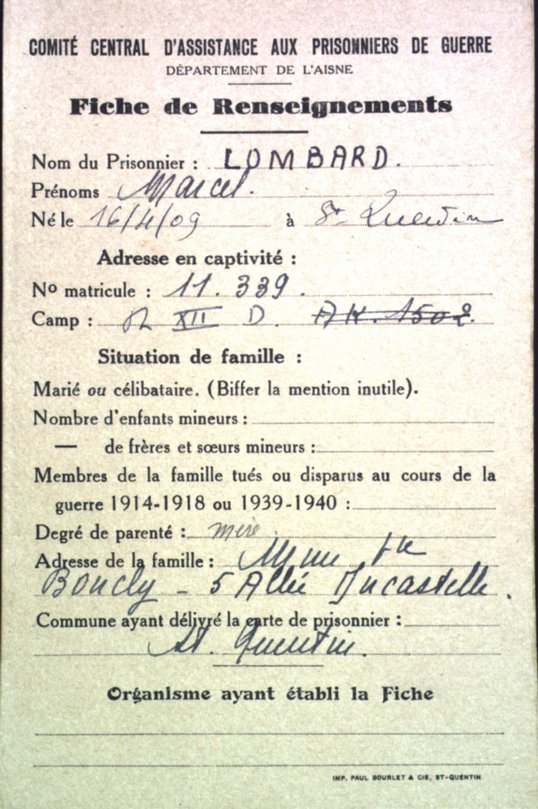 COMITÉ CENTRAL D'ASSISTANCE AUX PRISONNIERS DE GUERRE
DÉPARTEMENT DE L'AISNE
Fiche de Renseignements
Nom du Prisonnier : LOMBARD.
Prénoms Marcel.
Né le 16/4/09 à St Quentin
Adresse en captivité :
No matricule : 11.339.
Camp : XII D. AK. 1502
Situation de famille :
Marié ou célibataire. (Biffer la mention inutile).
Nombre d'enfants mineurs :
— de frères et sœurs mineurs :
Membres de la famille tués ou disparus au cours de la
guerre 1914-1918 ou 1939-1940 :
Degré de parenté : mère
Adresse de la famille : Mme
Boucly - 5 Allée
Commune ayant délivré la carte de prisonnier :
St. Quentin.
Organisme ayant établi la Fiche
IMP. PAUL BOURLET & CIE, ST-QUENTIN